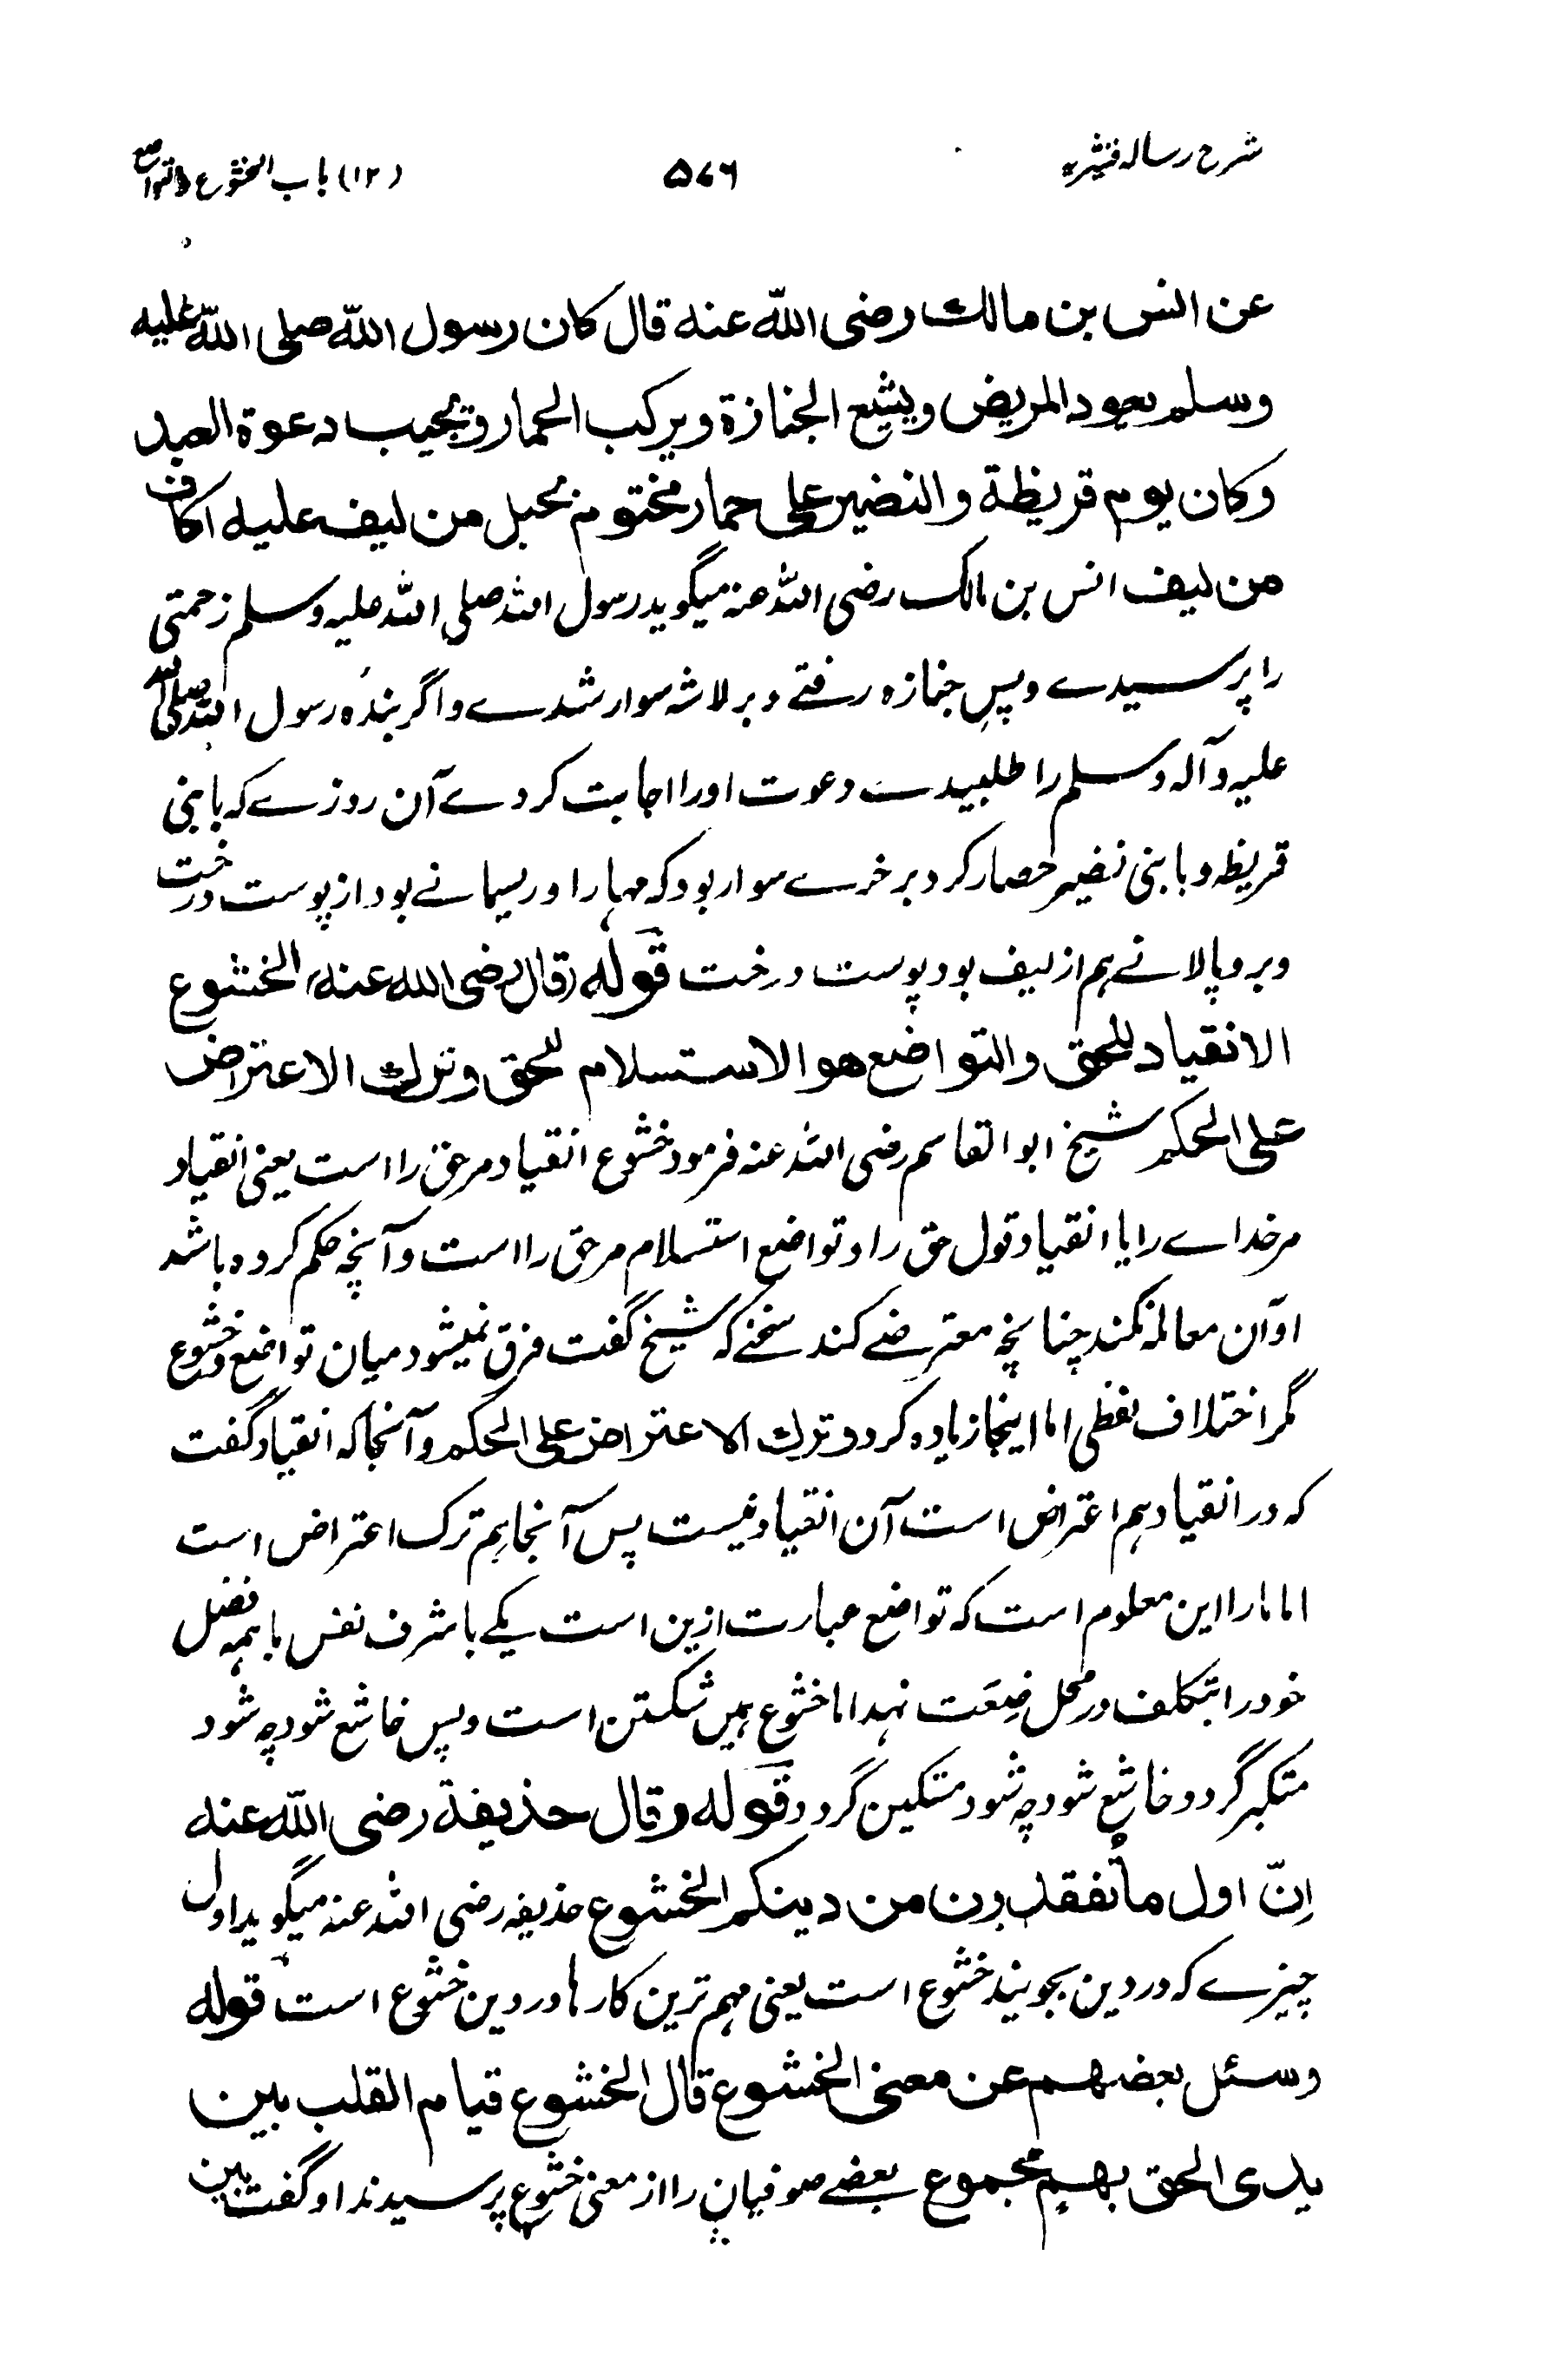 شرح رساله قشیریه
۵۷۶
(۱۲) باب الخشوع والتواضع
عن انس بن مالك رضى الله عنه قال كان رسول الله صلى الله عليه
وسلم يعود المريض ويشيع الجنازة ويركب الحمار ويجيب دعوة العبد
وكان يوم قريظة والنضير على حمار مختوم بحبل من ليف عليه اكاف
من ليف انس بن مالک رضی الله عنه میگوید رسول الله صلی الله علیه وسلم زحمتی
را پرسیدے وپسِ جنازه رفتے وبر لاشه سوار شدے واگر بندۀ رسول الله صلی الله
علیه وآله وسلم را طلبیدے دعوت او را اجابت کردے آن روزے که با بنی
قریظه و با بنی نضیر حصار کرد بر خرے سوار بود که مهار او ریسمانے بود از پوست درخت
وبرو پالانے هم از لیف بود پوست درخت قوله (قال رضى الله عنه) الخشوع
الانقياد للحق والتواضع هو الاستسلام للحق وترك الاعتراض
على الحكم شیخ ابو القاسم رضی الله عنه فرمود خشوع انقیاد مر حق را است یعنی انقیاد
مر خداے را یا انقیاد قول حق را وتواضع استسلام مر حق را است وآنچه حکم کرده باشد
او آن معامله نکند چنانچه معترضے کند سخنے که شیخ گفت فرق نمیشود میان تواضع وخشوع
مگر اختلاف لفظی اما اینجا زیاده کرد وترك الاعتراض على الحكم وآنجا که انقیاد گفت
که در انقیاد هم اعتراض است آن انقیاد نیست پس آنجا هم ترک اعتراض است
اما مارا این معلوم است که تواضع عبارت ازین است یکے با شرف نفس با همه فضل
خود را بتکلف در محل ضِعَت نهد اما خشوع همیں شکستن است وپس خاشع شود چه شود
متکبر گردد خاشع شود چه شود متمکین گردد قوله وقال حذيفة رضى الله عنه
اِنّ اول ما تفقدون من دينكم الخشوع حذیفه رضی الله عنه میگوید اول
چیزے که در دین بجویند خشوع است یعنی مهم ترین کارها در دین خشوع است قوله
وسئل بعضهم عن معنى الخشوع قال الخشوع قيام القلب بين
يدى الحق بهم مجموع بعضے صوفیان را از معنی خشوع پرسیدند او گفت بین